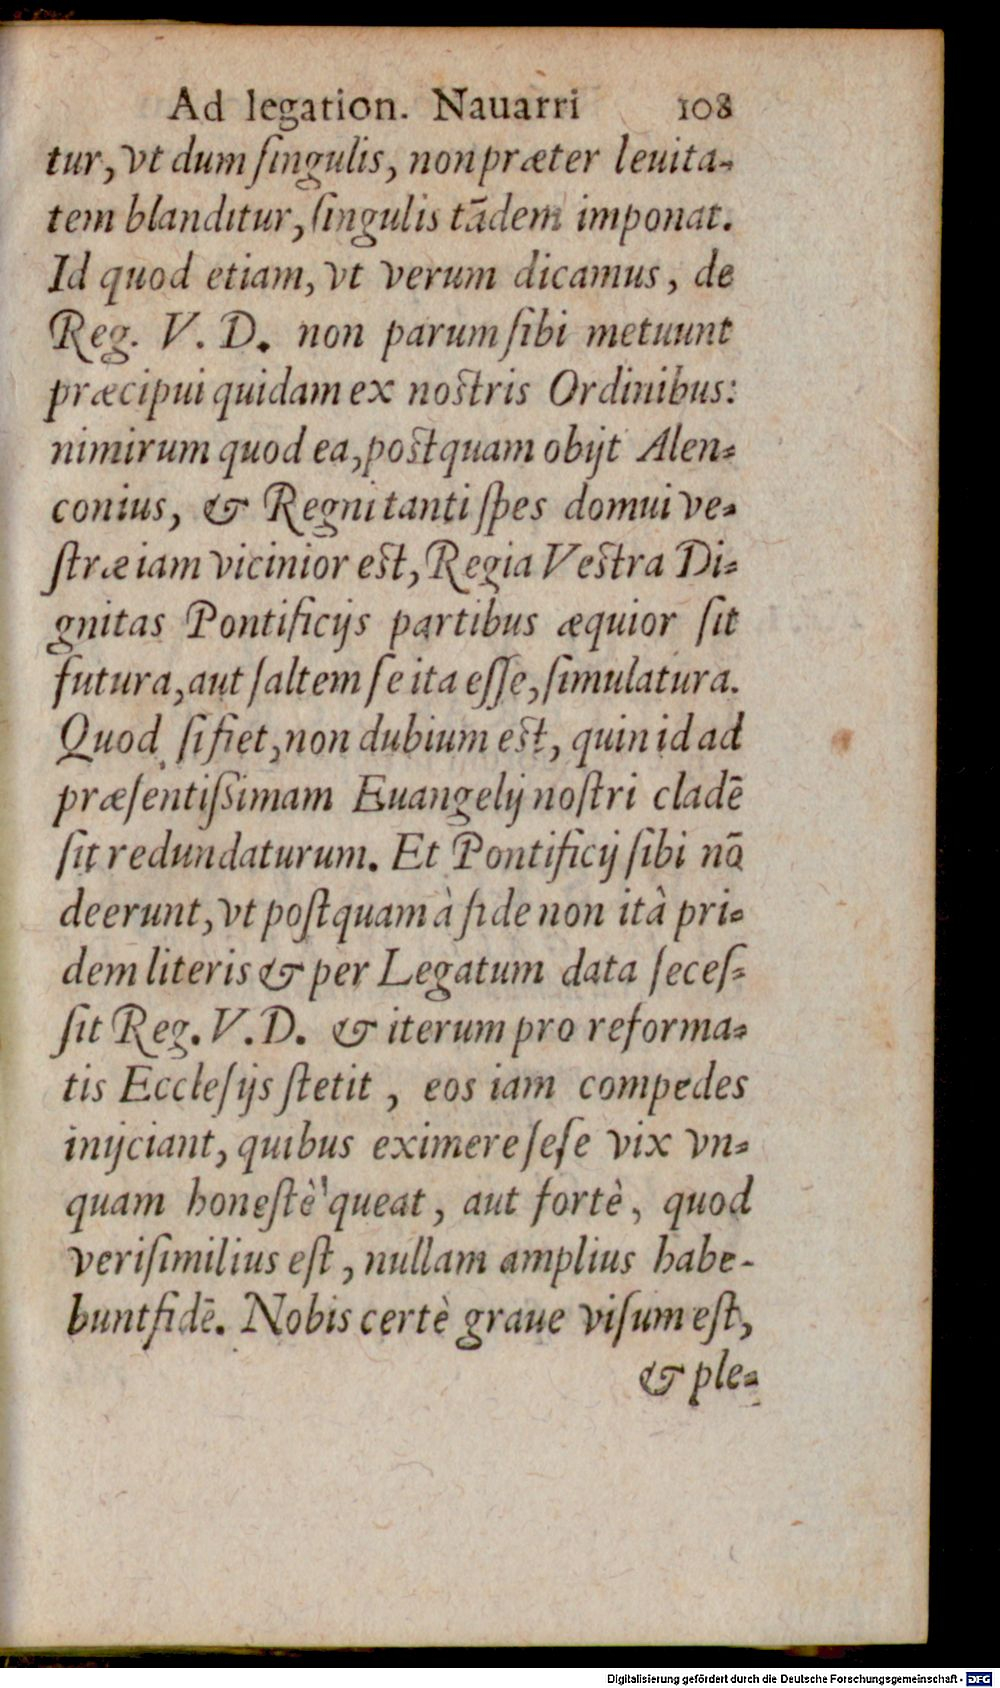 Ad legation. Nauarri 108
tur, vt dum ſingulis, non præter leuita-
tem blanditur, ſingulis tādem imponat.
Id quod etiam, vt verum dicamus, de
Reg. V. D. non parum ſibi metuunt
præcipui quidam ex noſtris Ordinibus:
nimirum quod ea, poſtquam obijt Alen-
conius, & Regni tanti ſpes domui ve-
ſtræ iam vicinior eſt, Regia Veſtra Di-
gnitas Pontificijs partibus æquior ſit
futura, aut ſaltem ſe ita eſſe, ſimulatura.
Quod ſi fiet, non dubium eſt, quin id ad
præſentiſſimam Euangelij noſtri cladē
ſit redundaturum. Et Pontificij ſibi nō
deerunt, vt poſtquam à fide non itâ pri-
dem literis & per Legatum data ſeceſ-
ſit Reg. V. D. & iterum pro reforma-
tis Eccleſijs ſtetit, eos iam compedes
inijciant, quibus eximere ſeſe vix vn-
quam honeſtè queat, aut fortè, quod
veriſimilius eſt, nullam amplius habe-
bunt fidē. Nobis certè graue viſum eſt,
& ple-
Digitalisierung gefördert durch die Deutsche Forschungsgemeinschaft - DFG